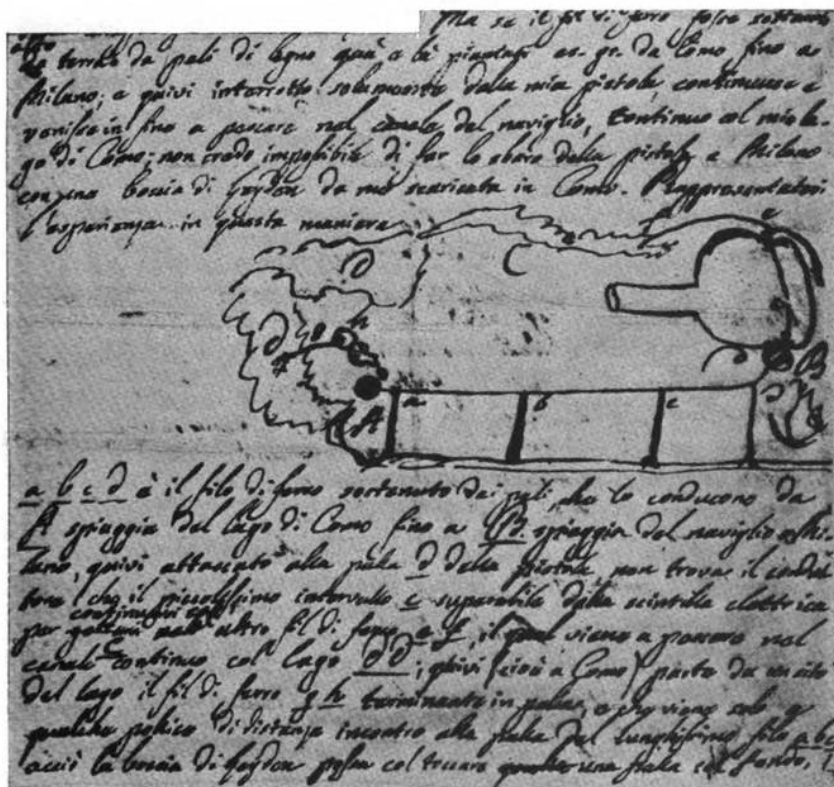 Ma se il fil di ferro fosse sostenuto
alto
da terra da pali di legno quà e là piantati es. gr. da Como fino a
Milano; e quivi interrotto solamente dalla mia pistola continuasse e
venisse in fino a pescare nel canale del naviglio, continuo col mio la-
go di Como; non credo impossibile di far lo sbaro della pistola a Milano
con una boccia di Leyden da me scaricata in Como. Rappresentatevi
l'esperienza in questa maniera
C
A a b c B
a b c d è il filo di ferro sostenuto dai pali, che lo conducono da
A spiaggia del lago di Como fino a B. spiaggia del naviglio a Mi-
lano, quivi attaccato alla palla d della pistola non trova il condut-
tore che il piccolissimo intervallo superabile dalla scintilla elettrica
per altro fil di ferro e f, il qual viene a pescare nel
canale C continuo col lago D D; quivi (cioè a Como) parte da un sito
del lago il fil di ferro g h terminante in palla, e che viene solo a
qualche pollice di distanza incontro alla palla del lunghissimo filo a b c
acciò la boccia di Leyden possa col toccare una palla col fondo,